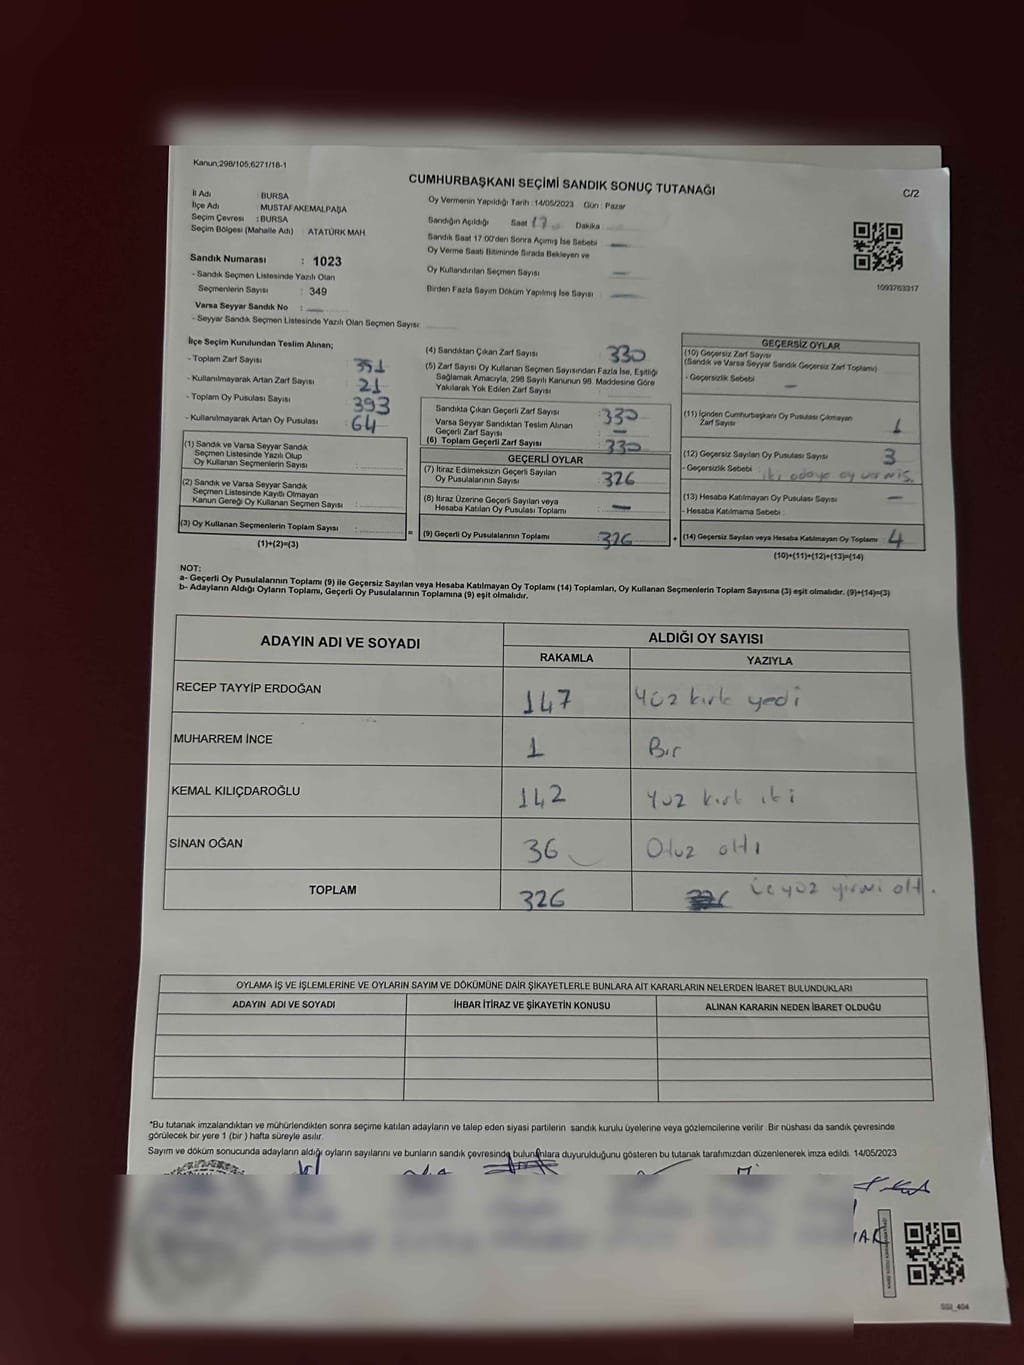 Kanun;298/105,6271/18-1
CUMHURBAŞKANI SEÇİMİ SANDIK SONUÇ TUTANAĞI
C/2
İl Adı BURSA
İlçe Adı MUSTAFAKEMALPAŞA
Seçim Çevresi : BURSA
Seçim Bölgesi (Mahalle Adı) ATATÜRK MAH
Oy Vermenin Yapıldığı Tarih : 14/05/2023 Gün : Pazar
Sandığın Açıldığı Saat 17 Dakika
Sandık Saat 17:00'den Sonra Açımış İse Sebebi
Oy Verme Saati Bitiminde Sırada Bekleyen ve
Oy Kullandırılan Seçmen Sayısı
Birden Fazla Sayım Döküm Yapılmış İse Sayısı
1093763317
Sandık Numarası : 1023
- Sandık Seçmen Listesinde Yazılı Olan
Seçmenlerin Sayısı : 349
Varsa Seyyar Sandık No :
- Seyyar Sandık Seçmen Listesinde Yazılı Olan Seçmen Sayısı
İlçe Seçim Kurulundan Teslim Alınan;
- Toplam Zarf Sayısı : 351
- Kullanılmayarak Artan Zarf Sayısı : 21
- Toplam Oy Pusulası Sayısı : 393
- Kullanılmayarak Artan Oy Pusulası : 64
(1) Sandık ve Varsa Seyyar Sandık
Seçmen Listesinde Yazılı Olup
Oy Kullanan Seçmenlerin Sayısı :
(2) Sandık ve Varsa Seyyar Sandık
Seçmen Listesinde Kayıtlı Olmayan
Kanun Gereği Oy Kullanan Seçmen Sayısı :
(3) Oy Kullanan Seçmenlerin Toplam Sayısı :
(1)+(2)=(3)
(4) Sandıktan Çıkan Zarf Sayısı : 330
(5) Zarf Sayısı Oy Kullanan Seçmen Sayısından Fazla İse, Eşitliği
Sağlamak Amacıyla, 298 Sayılı Kanunun 98. Maddesine Göre
Yakılarak Yok Edilen Zarf Sayısı :
Sandıkta Çıkan Geçerli Zarf Sayısı : 330
Varsa Seyyar Sandıktan Teslim Alınan
Geçerli Zarf Sayısı : —
(6) Toplam Geçerli Zarf Sayısı : 330
GEÇERLİ OYLAR
(7) İtiraz Edilmeksizin Geçerli Sayılan
Oy Pusulalarının Sayısı : 326
(8) İtiraz Üzerine Geçerli Sayılan veya
Hesaba Katılan Oy Pusulası Toplamı : —
= (9) Geçerli Oy Pusulalarının Toplamı : 326 +
GEÇERSİZ OYLAR
(10) Geçersiz Zarf Sayısı
(Sandık ve Varsa Seyyar Sandık Geçersiz Zarf Toplamı)
- Geçersizlik Sebebi : —
(11) İçinden Cumhurbaşkanı Oy Pusulası Çıkmayan
Zarf Sayısı : 1
(12) Geçersiz Sayılan Oy Pusulası Sayısı : 3
- Geçersizlik Sebebi : iki adaya oy vermiş.
(13) Hesaba Katılmayan Oy Pusulası Sayısı : —
- Hesaba Katılmama Sebebi :
(14) Geçersiz Sayılan veya Hesaba Katılmayan Oy Toplamı : 4
(10)+(11)+(12)+(13)=(14)
NOT:
a- Geçerli Oy Pusulalarının Toplamı (9) ile Geçersiz Sayılan veya Hesaba Katılmayan Oy Toplamı (14) Toplamları, Oy Kullanan Seçmenlerin Toplam Sayısına (3) eşit olmalıdır. (9)+(14)=(3)
b- Adayların Aldığı Oyların Toplamı, Geçerli Oy Pusulalarının Toplamına (9) eşit olmalıdır.
ADAYIN ADI VE SOYADI ALDIĞI OY SAYISI
RAKAMLA YAZIYLA
RECEP TAYYİP ERDOĞAN 147 Yüz kırk yedi
MUHARREM İNCE 1 Bır
KEMAL KILIÇDAROĞLU 142 Yüz kırk iki
SİNAN OĞAN 36 Otuz altı
TOPLAM 326 üçyüz yirmi altı.
OYLAMA İŞ VE İŞLEMLERİNE VE OYLARIN SAYIM VE DÖKÜMÜNE DAİR ŞİKAYETLERLE BUNLARA AİT KARARLARIN NELERDEN İBARET BULUNDUKLARI
ADAYIN ADI VE SOYADI İHBAR İTİRAZ VE ŞİKAYETİN KONUSU ALINAN KARARIN NEDEN İBARET OLDUĞU
*Bu tutanak imzalandıktan ve mühürlendikten sonra seçime katılan adayların ve talep eden siyasi partilerin sandık kurulu üyelerine veya gözlemcilerine verilir. Bir nüshası da sandık çevresinde
görülecek bir yere 1 (bir ) hafta süreyle asılır.
Sayım ve döküm sonucunda adayların aldığı oyların sayılarını ve bunların sandık çevresinde bulunanlara duyurulduğunu gösteren bu tutanak tarafımızdan düzenlenerek imza edildi. 14/05/2023
SSI_404